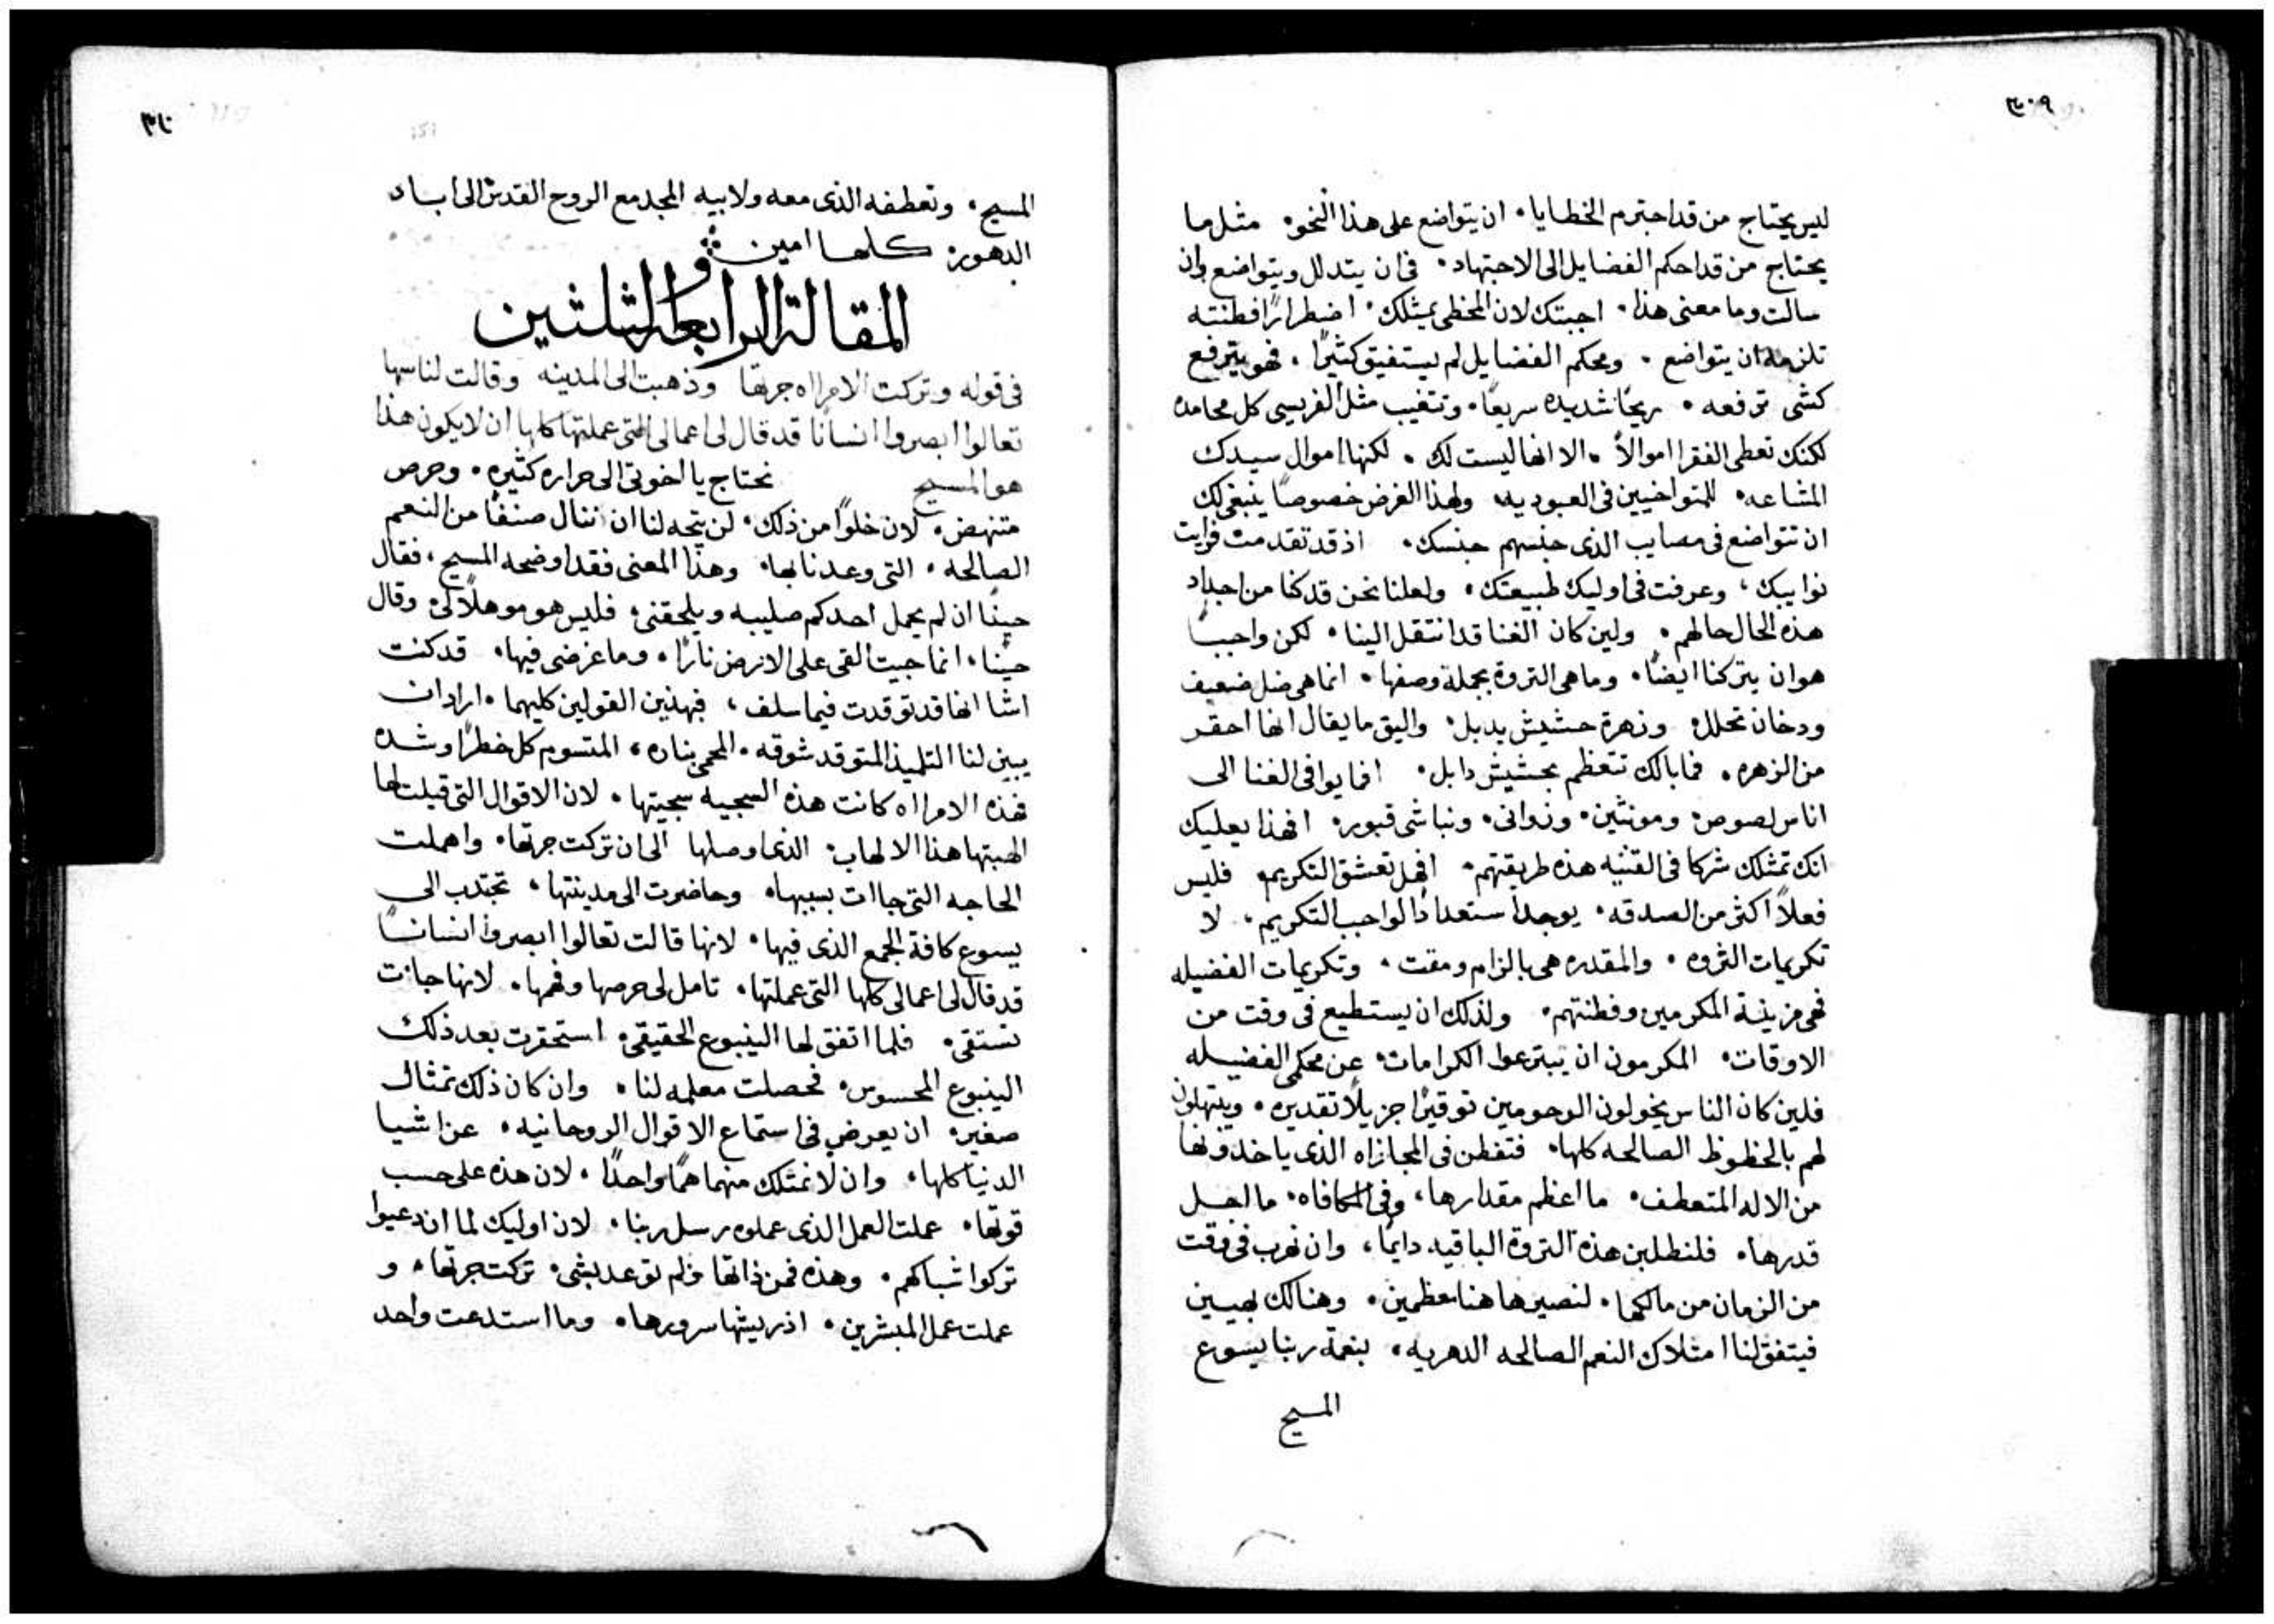 ٣٠٩
ليس يحتاج من قد اجترم الخطايا. ان يتواضع على هذا النحو. مثل ما
يحتاج من قد احكم الفضايل الى الاجتهاد. فى ان يتدلل ويتواضع وان
سالت وما معنى هذا. اجبتك لان المخطى يمثلك. اضطرارًا فطنته
تلزمه ان يتواضع. ومحكم الفضايل لم يستفيق كثيرًا. فهو يترفع
كشى ترفعه. ريحًا شديده سريعًا. وتغيب مثل الفريسى كل محامده
لكنك تعطى الفقرا اموالاً. الا انها ليست لك. لكنها اموال سيدك
المشاعه. للمتواخيين فى العبوديه. ولهذا الغرض خصوصًا ينبغى لك
ان تتواضع فى مصايب الذى جنسهم جنسك. اذ قد تقدمت فرايت
نوايبك، وعرفت فى اوليك طبيعتك. ولعلنا نحن قد كنا من اجداد
هذه الحال حالهم. ولين كان الغنا قد انتقل الينا. لكن واجبًا
هو ان يتركنا ايضًا. وما هى التروة بجملة وصفها. انما هى ضل ضعيف
ودخان تحلل. وزهرة حشيش يدبل. واليق ما يقال انها احقر
من الزهره. فما بالك تتعظم بحشيش دابل. افما يوافى الغنا الى
اناس لصوص. ومونثين. وزوانى. ونباشى قبور. افهذا يعليك
انك تمثلك شركا فى القنيه هذه طريقتهم. افهل تعشق التكريم. فليس
فعلاً اكثر من الصدقه. يوجد استعدادًا لواجب التكريم. لا
تكريمات الثروه. والمقدره هى بالزام ومقت. وتكريمات الفضيله
فهى مزينة المكرمين وفطنتهم. ولذلك ان يستطيع فى وقت من
الاوقات. المكرمون ان يبترعوا الكرامات. عن محكمى الفضيله
فلين كان الناس يخولون المرحومين توقيرًا جزيلاً تقديره. ويبتهلون
لهم بالحظوظ الصالحه كلها. فتفطن فى المجازاه الذى ياخذونها
من الاله المتعطف. ما اعظم مقدارها، وفى المكافاه. ما اجل
قدرها. فلنطلبن هذه التروة الباقيه دايمًا، وان نهرب فى وقت
من الزمان من مالكها. لنصيرها هنا معظمين. وهنالك بهيين
فيتفق لنا امتلاك النعم الصالحه الدهريه، بنعمة ربنا يسوع
المسيح
٣١٠
المسيح. وتعطفه الذى معه ولابيه المجد مع الروح القدس الى اباد
الدهور كلها امين
المقالة الرابعة والثلثين
فى قوله وتركت الامراه جرتها وذهبت الى المدينه وقالت لناسها
تعالوا ابصروا انسانًا قد قال لى اعمالى التى عملتها كلها ان لا يكون هذا
هو المسيح نحتاج يا اخوتى الى حراره كثيره. وحرص
متنهض. لان خلوًا من ذلك. لن يتجه لنا ان ننال صنفًا من النعم
الصالحه. التى وعدنا بها. وهذا المعنى فقد اوضحه المسيح، فقال
حينًا ان لم يحمل احدكم صليبه ويلحقنى. فليس هو موهلاً لى. وقال
حينًا، انما جيت القى على الارض نارًا. وما غرضى فيها. قد كنت
اشا انها قد توقدت فيما سلف، فبهذين القولين كليهما. اراد ان
يبين لنا التلميذ المتوقد شوقه. المحمى بناره، المتسوم كل خطرًا وشده
فهذه الامراه كانت هذه السجيه سجيتها. لان الاقوال التى قيلت لها
الهبتها هذا الالهاب. الذى اوصلها الى ان تركت جرتها. واهملت
الحاجه التى جاات بسببها. وحاضرت الى مدينتها، تجتدب الى
يسوع كافة الجمع الذى فيها. لانها قالت تعالوا ابصروا انسانًا
قد قال لى اعمالى كلها التى عملتها. تامل لى حرصها وفهمها. لانها جات
تستقى. فلما اتفق لها الينبوع الحقيقى. استحقرت بعد ذلك
الينبوع المحسوس. فحصلت معلمه لنا. وان كان ذلك تمثال
صغير. ان يعرض فى استماع الاقوال الروحانيه. عن اشيا
الدنيا كلها. وان لا نمتلك منهما همًا واحدًا. لان هذه على حسب
قوتها. عملت العمل الذى عملوه رسل ربنا. لان اوليك لما ان دعيوا
تركوا شباكهم. وهذه فمن ذاتها ولم توعد بشى. تركت جرتها. و
عملت عمل المبشرين. اذ ريشها سرورها. وما استدعت واحد